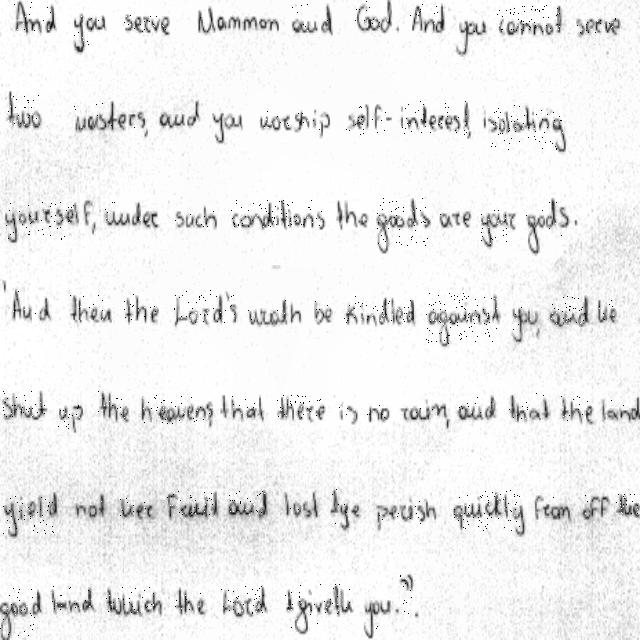 And you serve Mammon and God. And you cannot serve
two masters, and you worship self-interest, isolating
yourself, under such conditions the goods are your gods.
'And then the Lord's wrath be kindled against you, and he
shut up the heavens, that there is no rain, and that the land
yield not her Fruit and lest ye perish quickly from off the
good land which the Lord giveth you.").